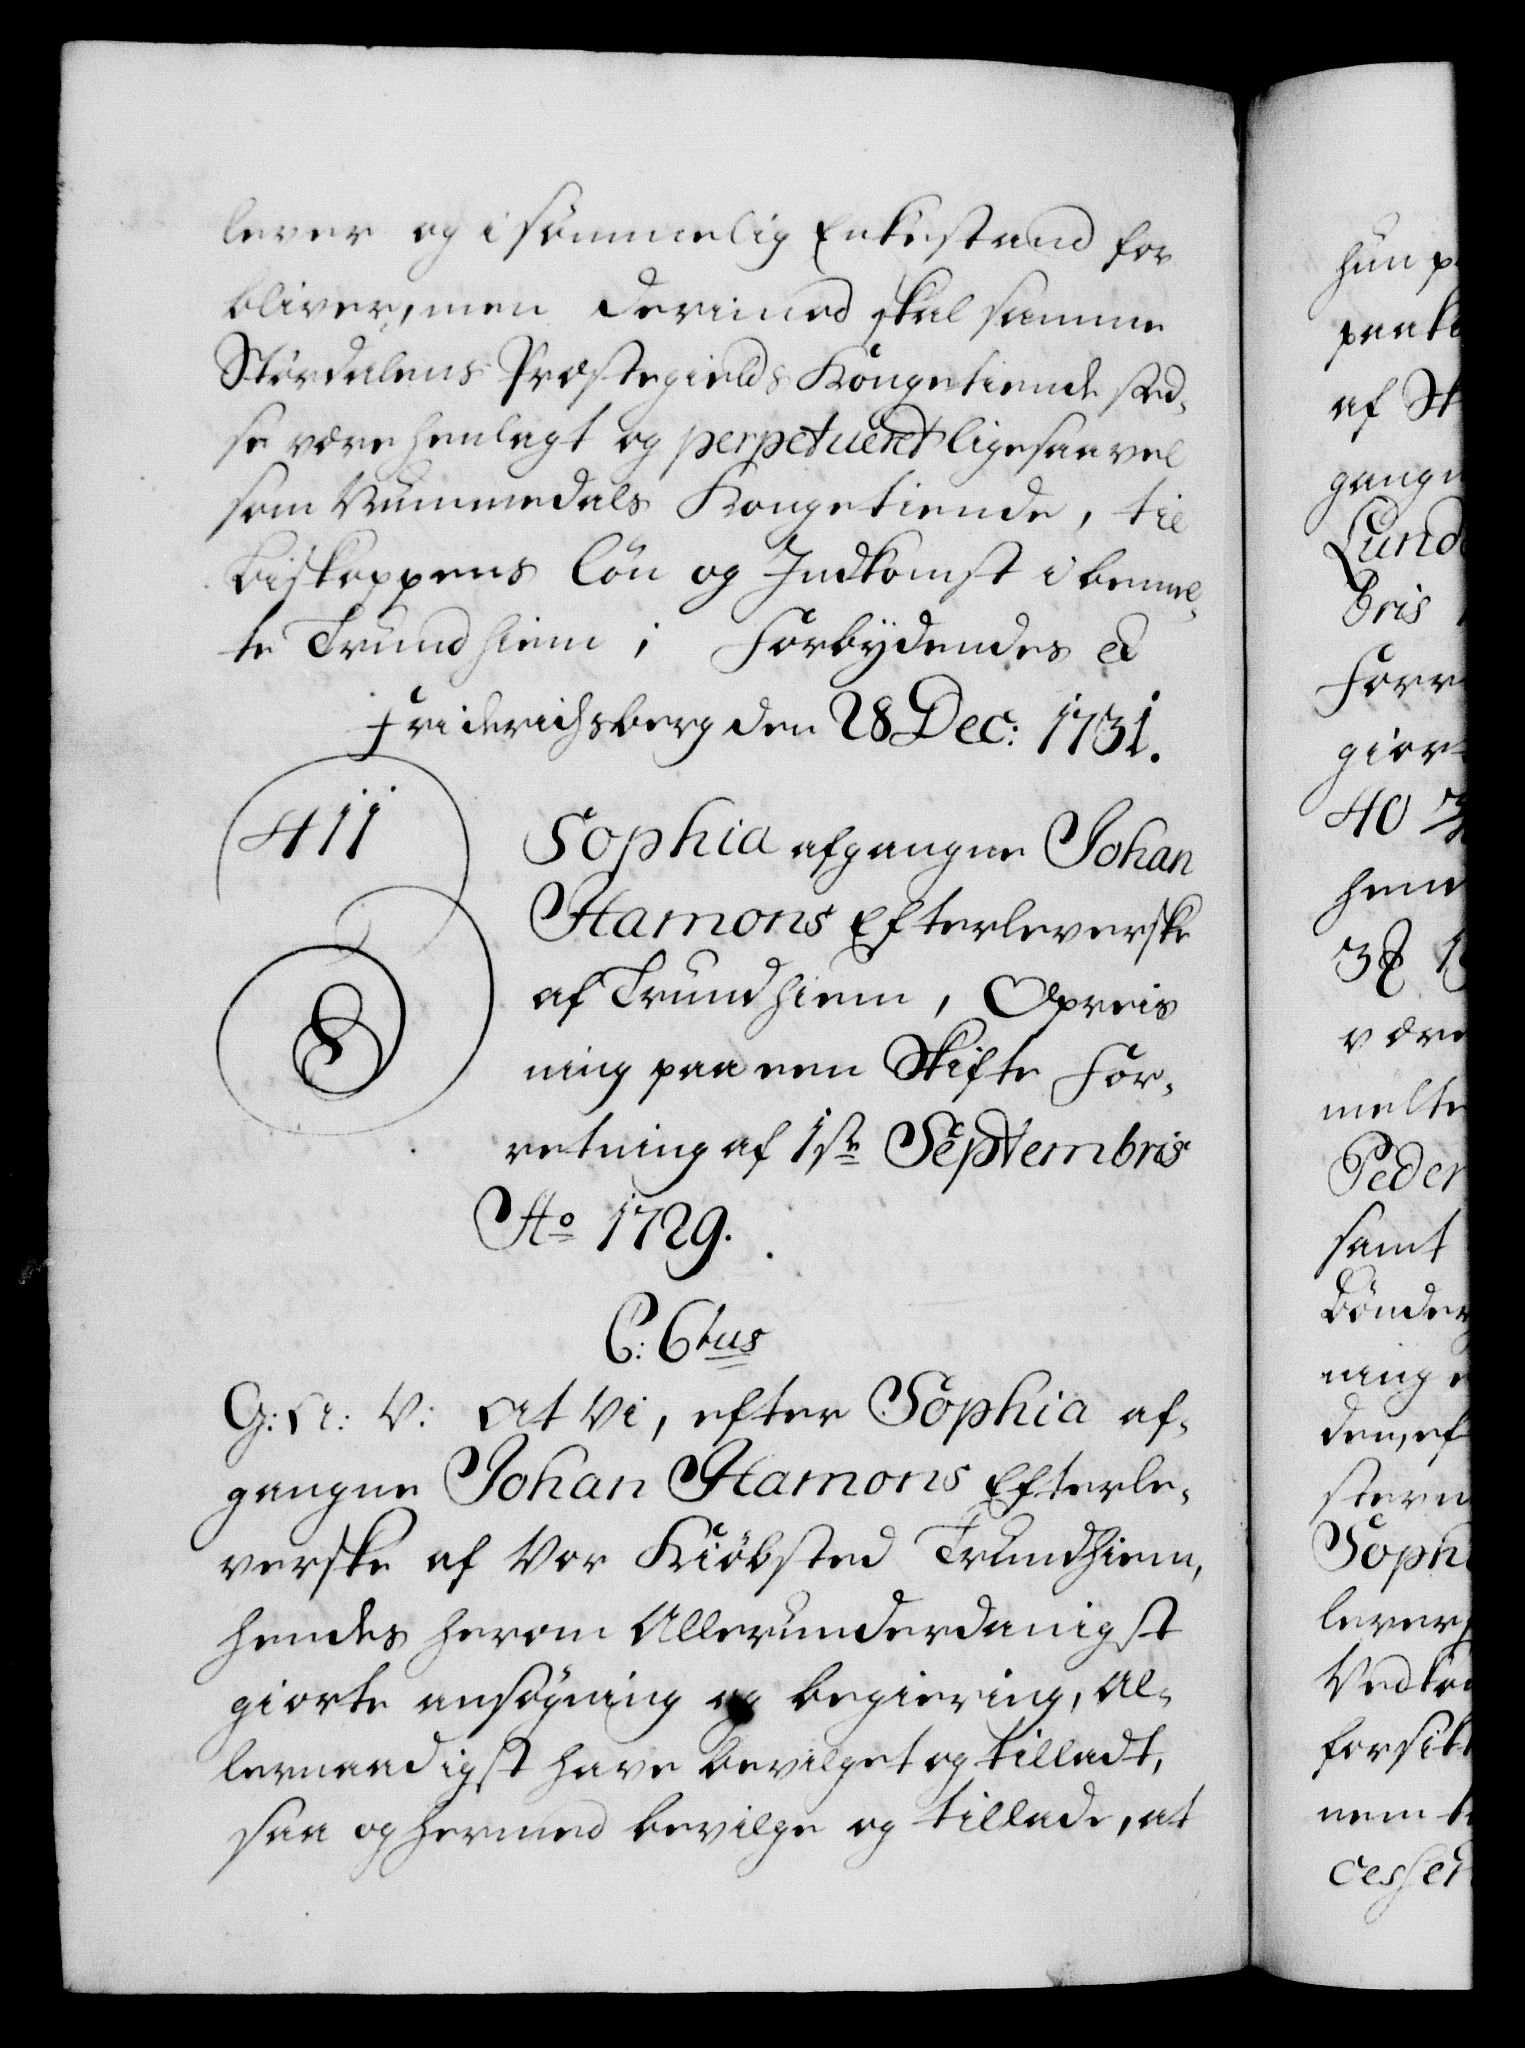 lever og i sømmelig Enkestand for
bliver, men derimod skal samme
Størdalens Præstegields Kongetiende sted,
se være henlagt og perpetueret ligesaavel
som Nummedals Kongetiende, til
Biskoppens Løn og Indkomst i bemel,
te Trundhiem; Forbydendes &
Friderichsberg den 28 Dec: 1731.
411
Sophia afgangne Johan
Hamons Efterleverske
af Trundhiem, Opreis
ning paa een Skifte For,
retning af 1ste Septembris
Ao 1729.
C: 6tus
G: A: V: At Vi, efter Sophia af,
gangne Johan Hamons Efterle,
verske af Vor Kiøbsted Trundhiem,
hendes herom Allerunderdanigst
giorte ansøgning og begiering, Al,
lernaadigst have bevilget og tilladt,
saa og hermed bevilge og tillade, at
hun p
paak
af St
gangn
Lund
bris
Forr
gior
40
hen
3
være
melte
Peder
samt
Bønder
ning
den, ef
stern
Soph
lever
Vedko
forsik
nem
cesser